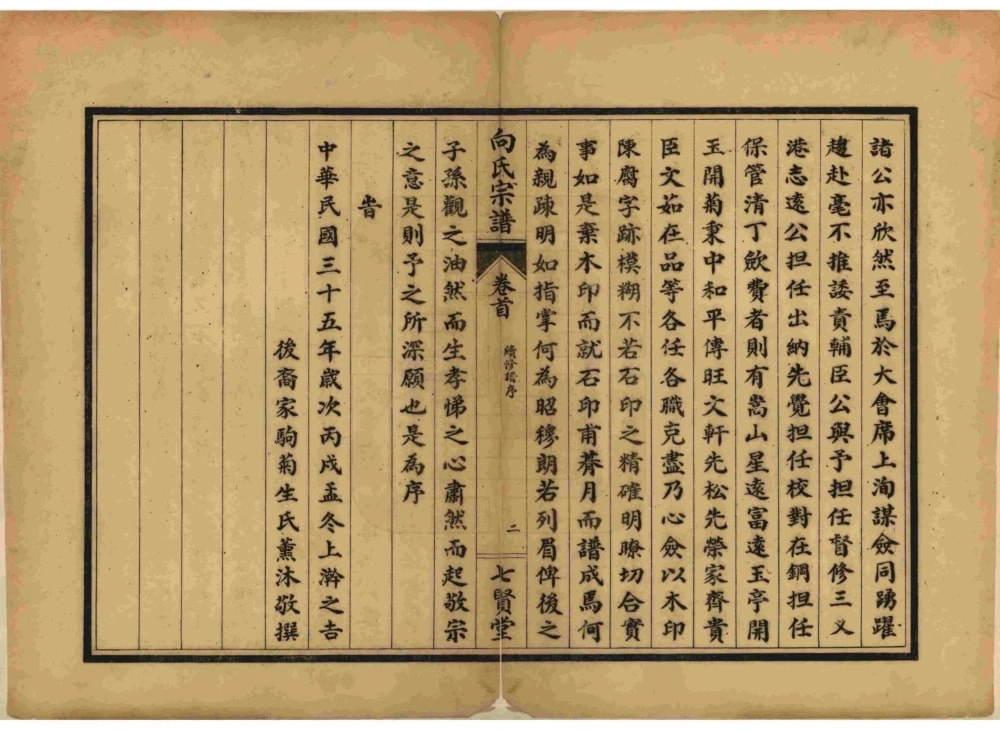 諸公亦欣然至焉於大會席上洵謀僉同踴躍
趨赴毫不推諉責輔臣公與予担任督修三义
港志遠公担任出納先覺担任校對在鋼担任
保管清丁歛費者則有嵩山星遠富遠玉亭開
玉開菊秉中和平傳旺文軒先松先榮家齊貴
臣文茹在品等各任各職克盡乃心僉以木印
陳腐字跡模糊不若石印之精確明瞭切合實
事如是棄木印而就石印甫朞月而譜成焉何
為親疎明如指掌何為昭穆朗若列眉俾後之
向氏宗譜
卷首
續修譜序
二
七賢堂
子孫觀之油然而生孝悌之心肅然而起敬宗
之意是則予之所深願也是為序
旹
中華民國三十五年歲次丙戌孟冬上澣之吉
後裔家駒菊生氏薰沐敬撰